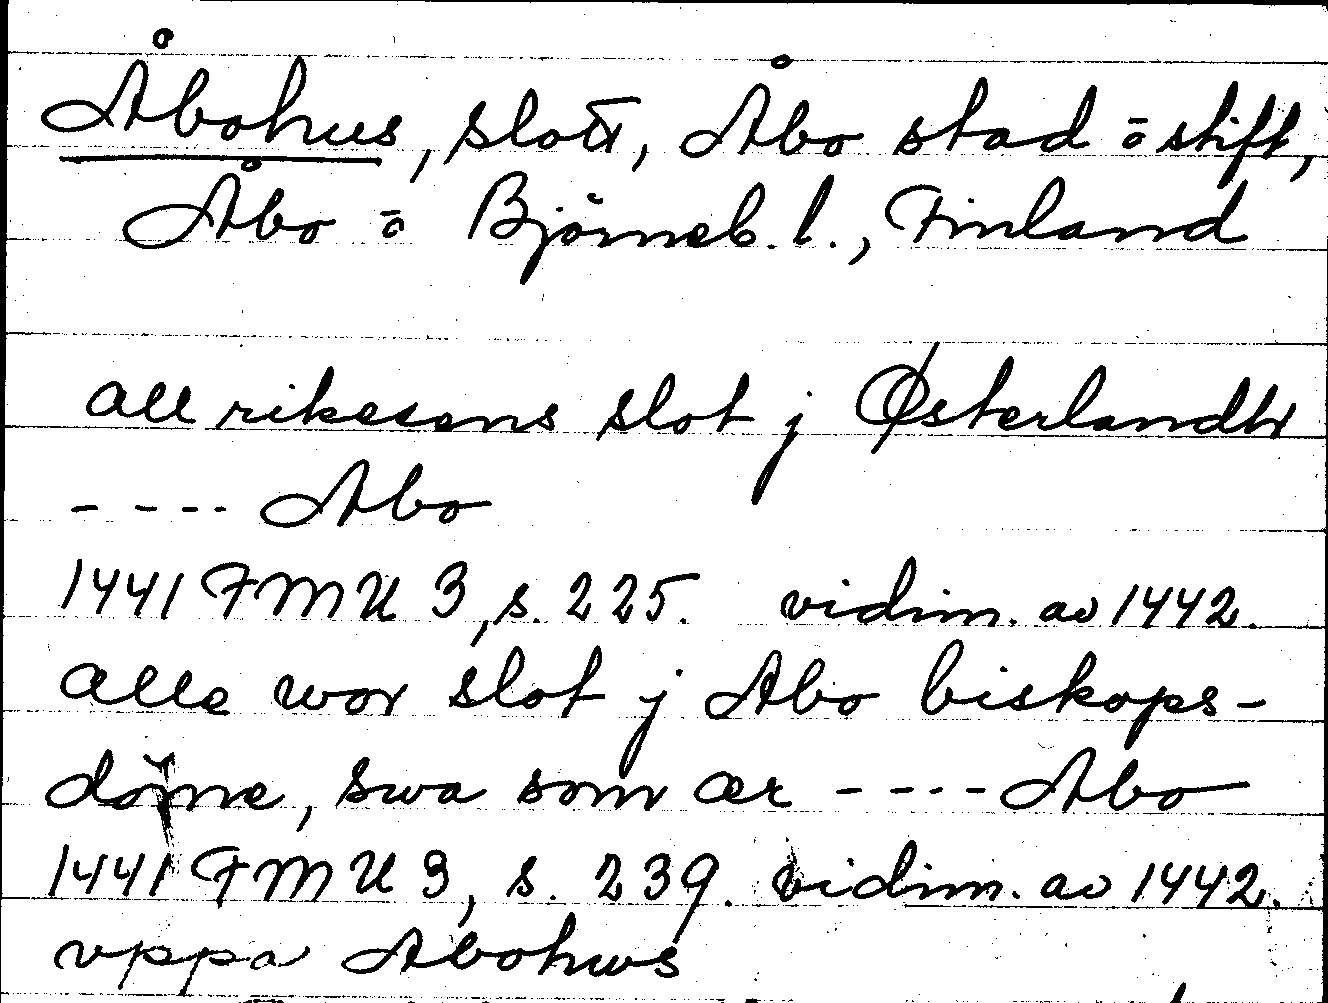 Åbohus, slott, Åbo stad o stift,
Åbo o Björneb. l., Finland
all rikesens slot j Østerlandh
- - - - Abo
1441 FMU 3, s. 225. vidim. av 1442.
alle wor slot j Abo biskops-
døme, swa som ær - - - - Abo
1441 FMU 3, s. 239. vidim. av 1442.
vppa Abohws